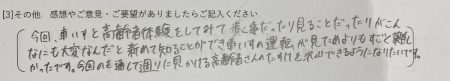 [3]その他 感想やご意見・ご要望がありましたらご記入ください
今回、車いすと高齢者体験をしてみて歩く事だったり見ることだったりがこん
なにも大変なんだと新めて知ることができ車いすの運転が見ためよりもすごく難し
かったです。今回のを通して週りに見かける高齢者さんのたすけを沢山できるようになりたいです。